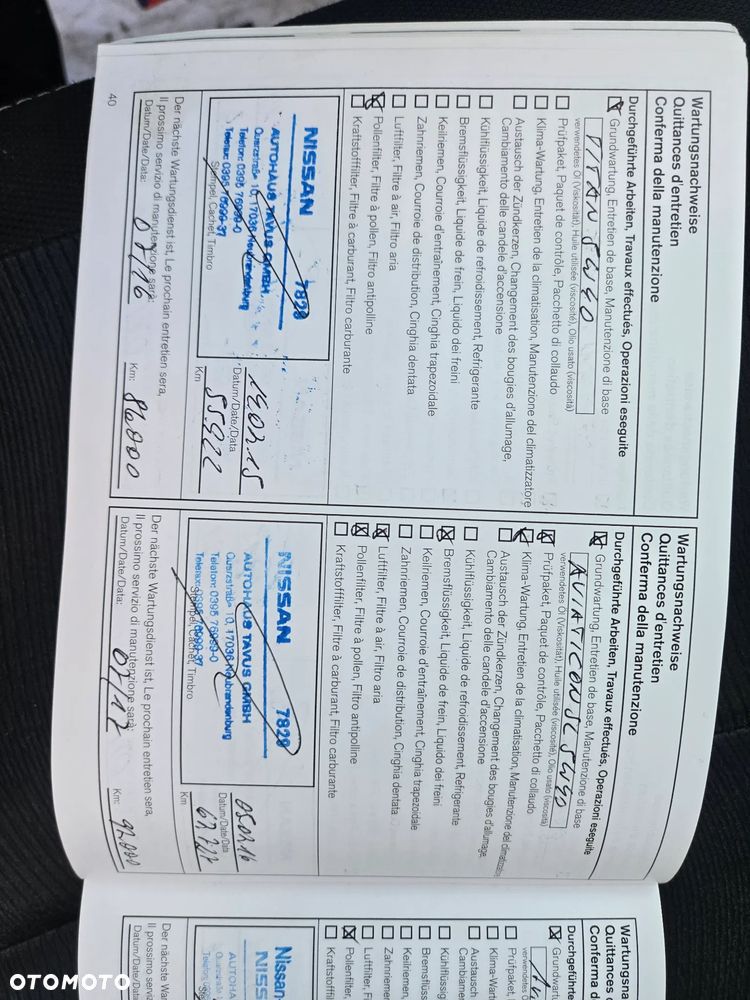 Wartungsnachweise
Quittances d'entretien
Conferma della manutenzione
Durchgeführte Arbeiten, Travaux effectués, Operazioni eseguite
Grundwartung, Entretien de base, Manutenzione di base
5W40
verwendetes Öl (Viskosität), Huile utilisée (viscosité), Olio usato (viscosità)
Prüfpaket, Paquet de contrôle, Pacchetto di collaudo
Klima-Wartung, Entretien de la climatisation, Manutenzione del climatizzatore
Austausch der Zündkerzen, Changement des bougies d'allumage,
Cambiamento delle candele d'accensione
Kühlflüssigkeit, Liquide de refroidissement, Refrigerante
Bremsflüssigkeit, Liquide de frein, Liquido dei freini
Keilriemen, Courroie d'entraînement, Cinghia trapezoidale
Zahnriemen, Courroie de distribution, Cinghia dentata
Luftfilter, Filtre à air, Filtro aria
Pollenfilter, Filtre à pollen, Filtro antipolline
Kraftstofffilter, Filtre à carburant, Filtro carburante
NISSAN 7829
AUTOHAUS TAVUS GMBH
Quarzstraße 10, 17036 Neubrandenburg
Telefon: 0395 76999-0
Telefax: 0395 76999-37
Stempel, Cachet, Timbro
Datum/Date/Data
Km
Der nächste Wartungsdienst ist, Le prochain entretien sera,
Il prossimo servizio di manutenzione sarà:
Datum/Date/Data:
Km:
40
Wartungsnachweise
Quittances d'entretien
Conferma della manutenzione
Durchgeführte Arbeiten, Travaux effectués, Operazioni eseguite
Grundwartung, Entretien de base, Manutenzione di base
5W40
verwendetes Öl (Viskosität), Huile utilisée (viscosité), Olio usato (viscosità)
Prüfpaket, Paquet de contrôle, Pacchetto di collaudo
Klima-Wartung, Entretien de la climatisation, Manutenzione del climatizzatore
Austausch der Zündkerzen, Changement des bougies d'allumage,
Cambiamento delle candele d'accensione
Kühlflüssigkeit, Liquide de refroidissement, Refrigerante
Bremsflüssigkeit, Liquide de frein, Liquido dei freini
Keilriemen, Courroie d'entraînement, Cinghia trapezoidale
Zahnriemen, Courroie de distribution, Cinghia dentata
Luftfilter, Filtre à air, Filtro aria
Pollenfilter, Filtre à pollen, Filtro antipolline
Kraftstofffilter, Filtre à carburant, Filtro carburante
NISSAN 7829
AUTOHAUS TAVUS GMBH
Quarzstraße 10, 17036 Neubrandenburg
Telefon: 0395 76999-0
Telefax: 0395 76999-37
Stempel, Cachet, Timbro
Datum/Date/Data
Km
Der nächste Wartungsdienst ist, Le prochain entretien sera,
Il prossimo servizio di manutenzione sarà:
Datum/Date/Data:
07/17
Km:
Wartungsnachweise
Quittances
Conferma
Durchgeführte
Prüfpaket,
Klima-
Austausch
Cambiam
Kühlflüssig
Bremsflüss
Keilriemen,
Zahnriemen
Luftfilter, F
Pollenfilter,
Kraftstofffilter
Nissan
NISS
AUTOHA
Der nächste
Il prossimo servizio
Datum/Date/Data
OTOMOTO